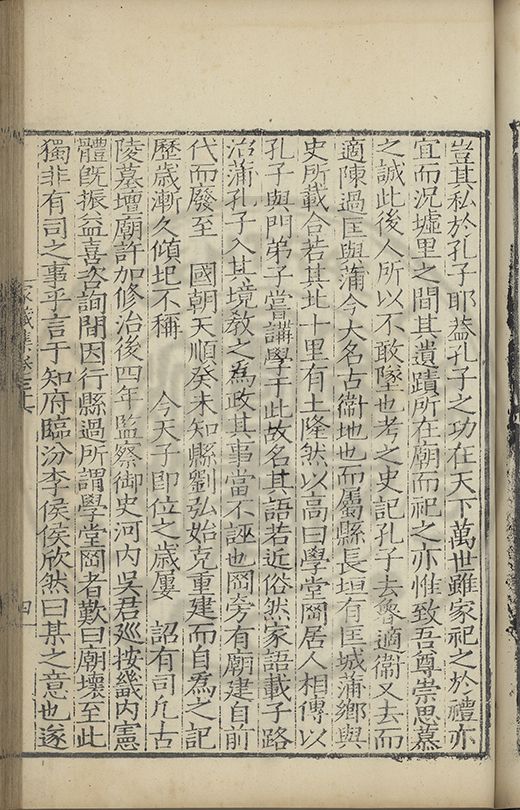 豈其私於孔子耶蓋孔子之功在天下萬世雖家祀之於禮亦
宜而况墟里之間其遺蹟所在廟而祀之亦惟致吾尊崇思慕
之誠此後人所以不敢墜也考之史記孔子去魯適衞又去而
適陳過匡與蒲今大名古衞地也而屬縣長垣有匡城蒲鄉與
史所載合若其北十里有土隆然以高曰學堂岡居人相傳以
孔子與門弟子嘗講學于此故名其語若近俗然家語載子路
治蒲孔子入其境敎之為政其事當不誣也岡旁有廟建自前
代而廢至 國朝天順癸未知縣劉弘始克重建而自為之記
歷歲漸久傾圯不稱 今天子即位之歲屢 詔有司凡古
陵墓壇廟許加修治後四年監察御史河内吳君廵按畿内憲
體旣振益喜咨詢間因行縣過所謂學堂岡者歎曰廟壞至此
獨非有司之事乎言于知府臨汾李侯侯欣然曰某之意也遂
家藏集卷三十六
四